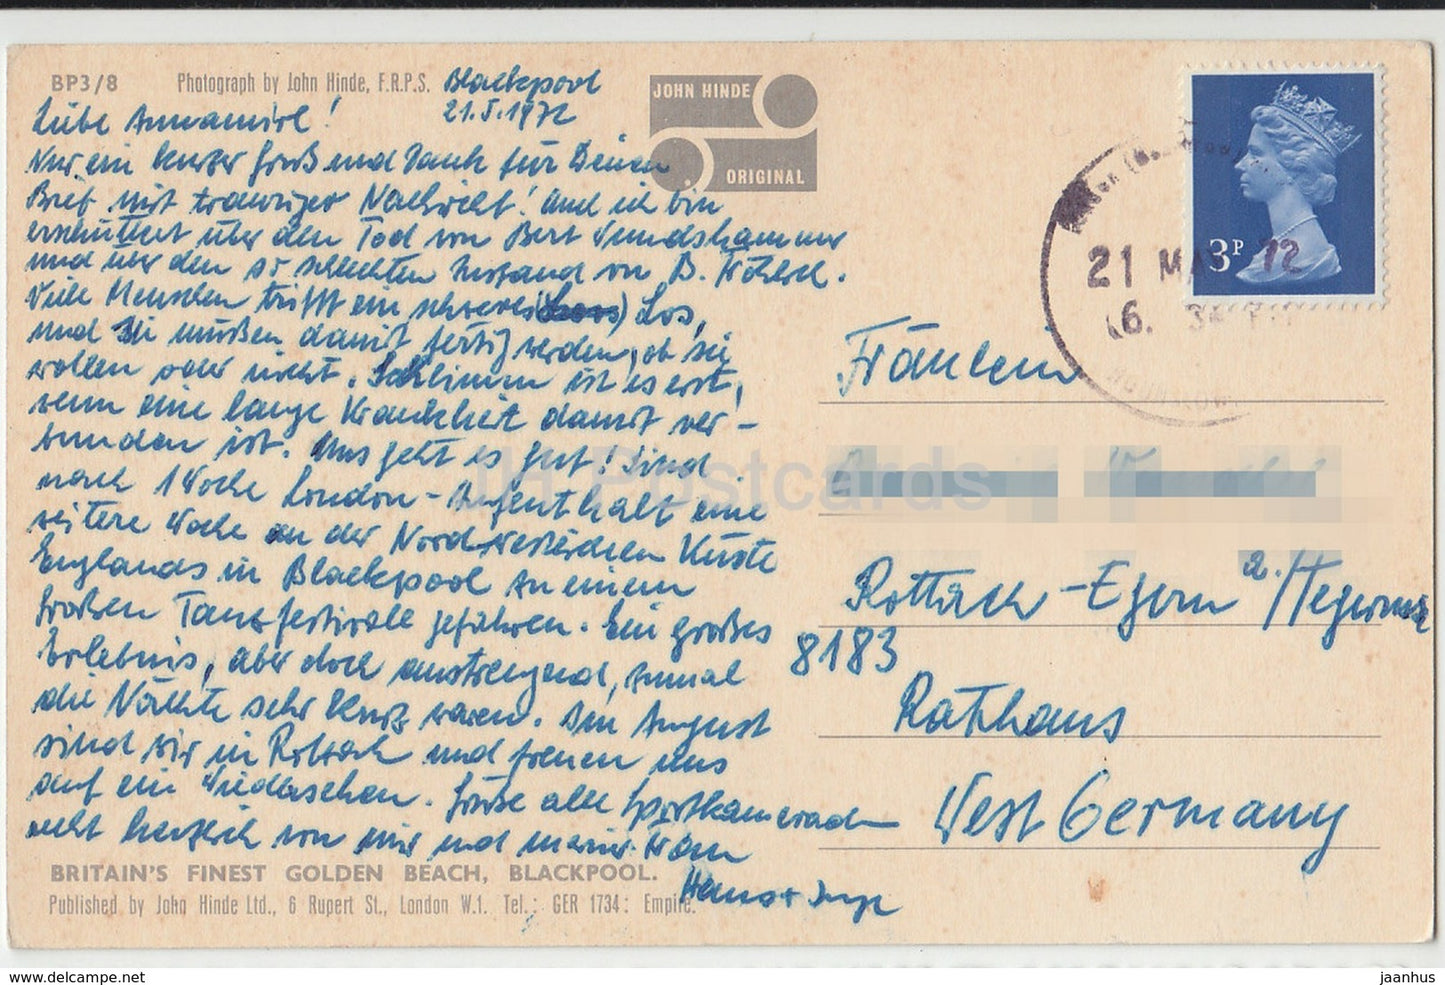 BP3/8 Photograph by John Hinde, F.R.P.S.
JOHN HINDE
ORIGINAL
Blackpool
21.5.1972
Liebe Annamirl!
Nur ein kurzer Gruß und Dank für Deinen
Brief mit trauriger Nachricht! Auch ich bin
erschüttert über den Tod von Bert
und über den so schlechten Zustand von B.
Viele Menschen trifft ein schweres Los,
und Sie müßen damit fertig werden, ob sie
wollen oder nicht. Schlimm ist es erst,
wenn eine lange Krankheit damit ver-
bunden ist. Uns geht es gut! Sind
nach 1 Woche London-Aufenthalt eine
weitere Woche an der Nordwestlichen Küste
Englands in Blackpool zu einem
großen Tanzfestivale gefahren. Ein großes
Erlebnis, aber doch anstrengend, zumal
die Nächte sehr kurz waren. Im August
sind wir in Rottach und freuen uns
auf ein Wiedersehen. Grüße alle Sportkameraden
recht herzlich von mir und meiner Frau
Hans + Inge
3P
21 MAY 72
Fräulein
Rottach-Egern a./Tegernsee
8183
Rathaus
West Germany
BRITAIN'S FINEST GOLDEN BEACH, BLACKPOOL.
Published by John Hinde Ltd., 6 Rupert St., London W.1. Tel.: GER 1734: Empire.
JH Postcards
delcampe.net
jaanhus